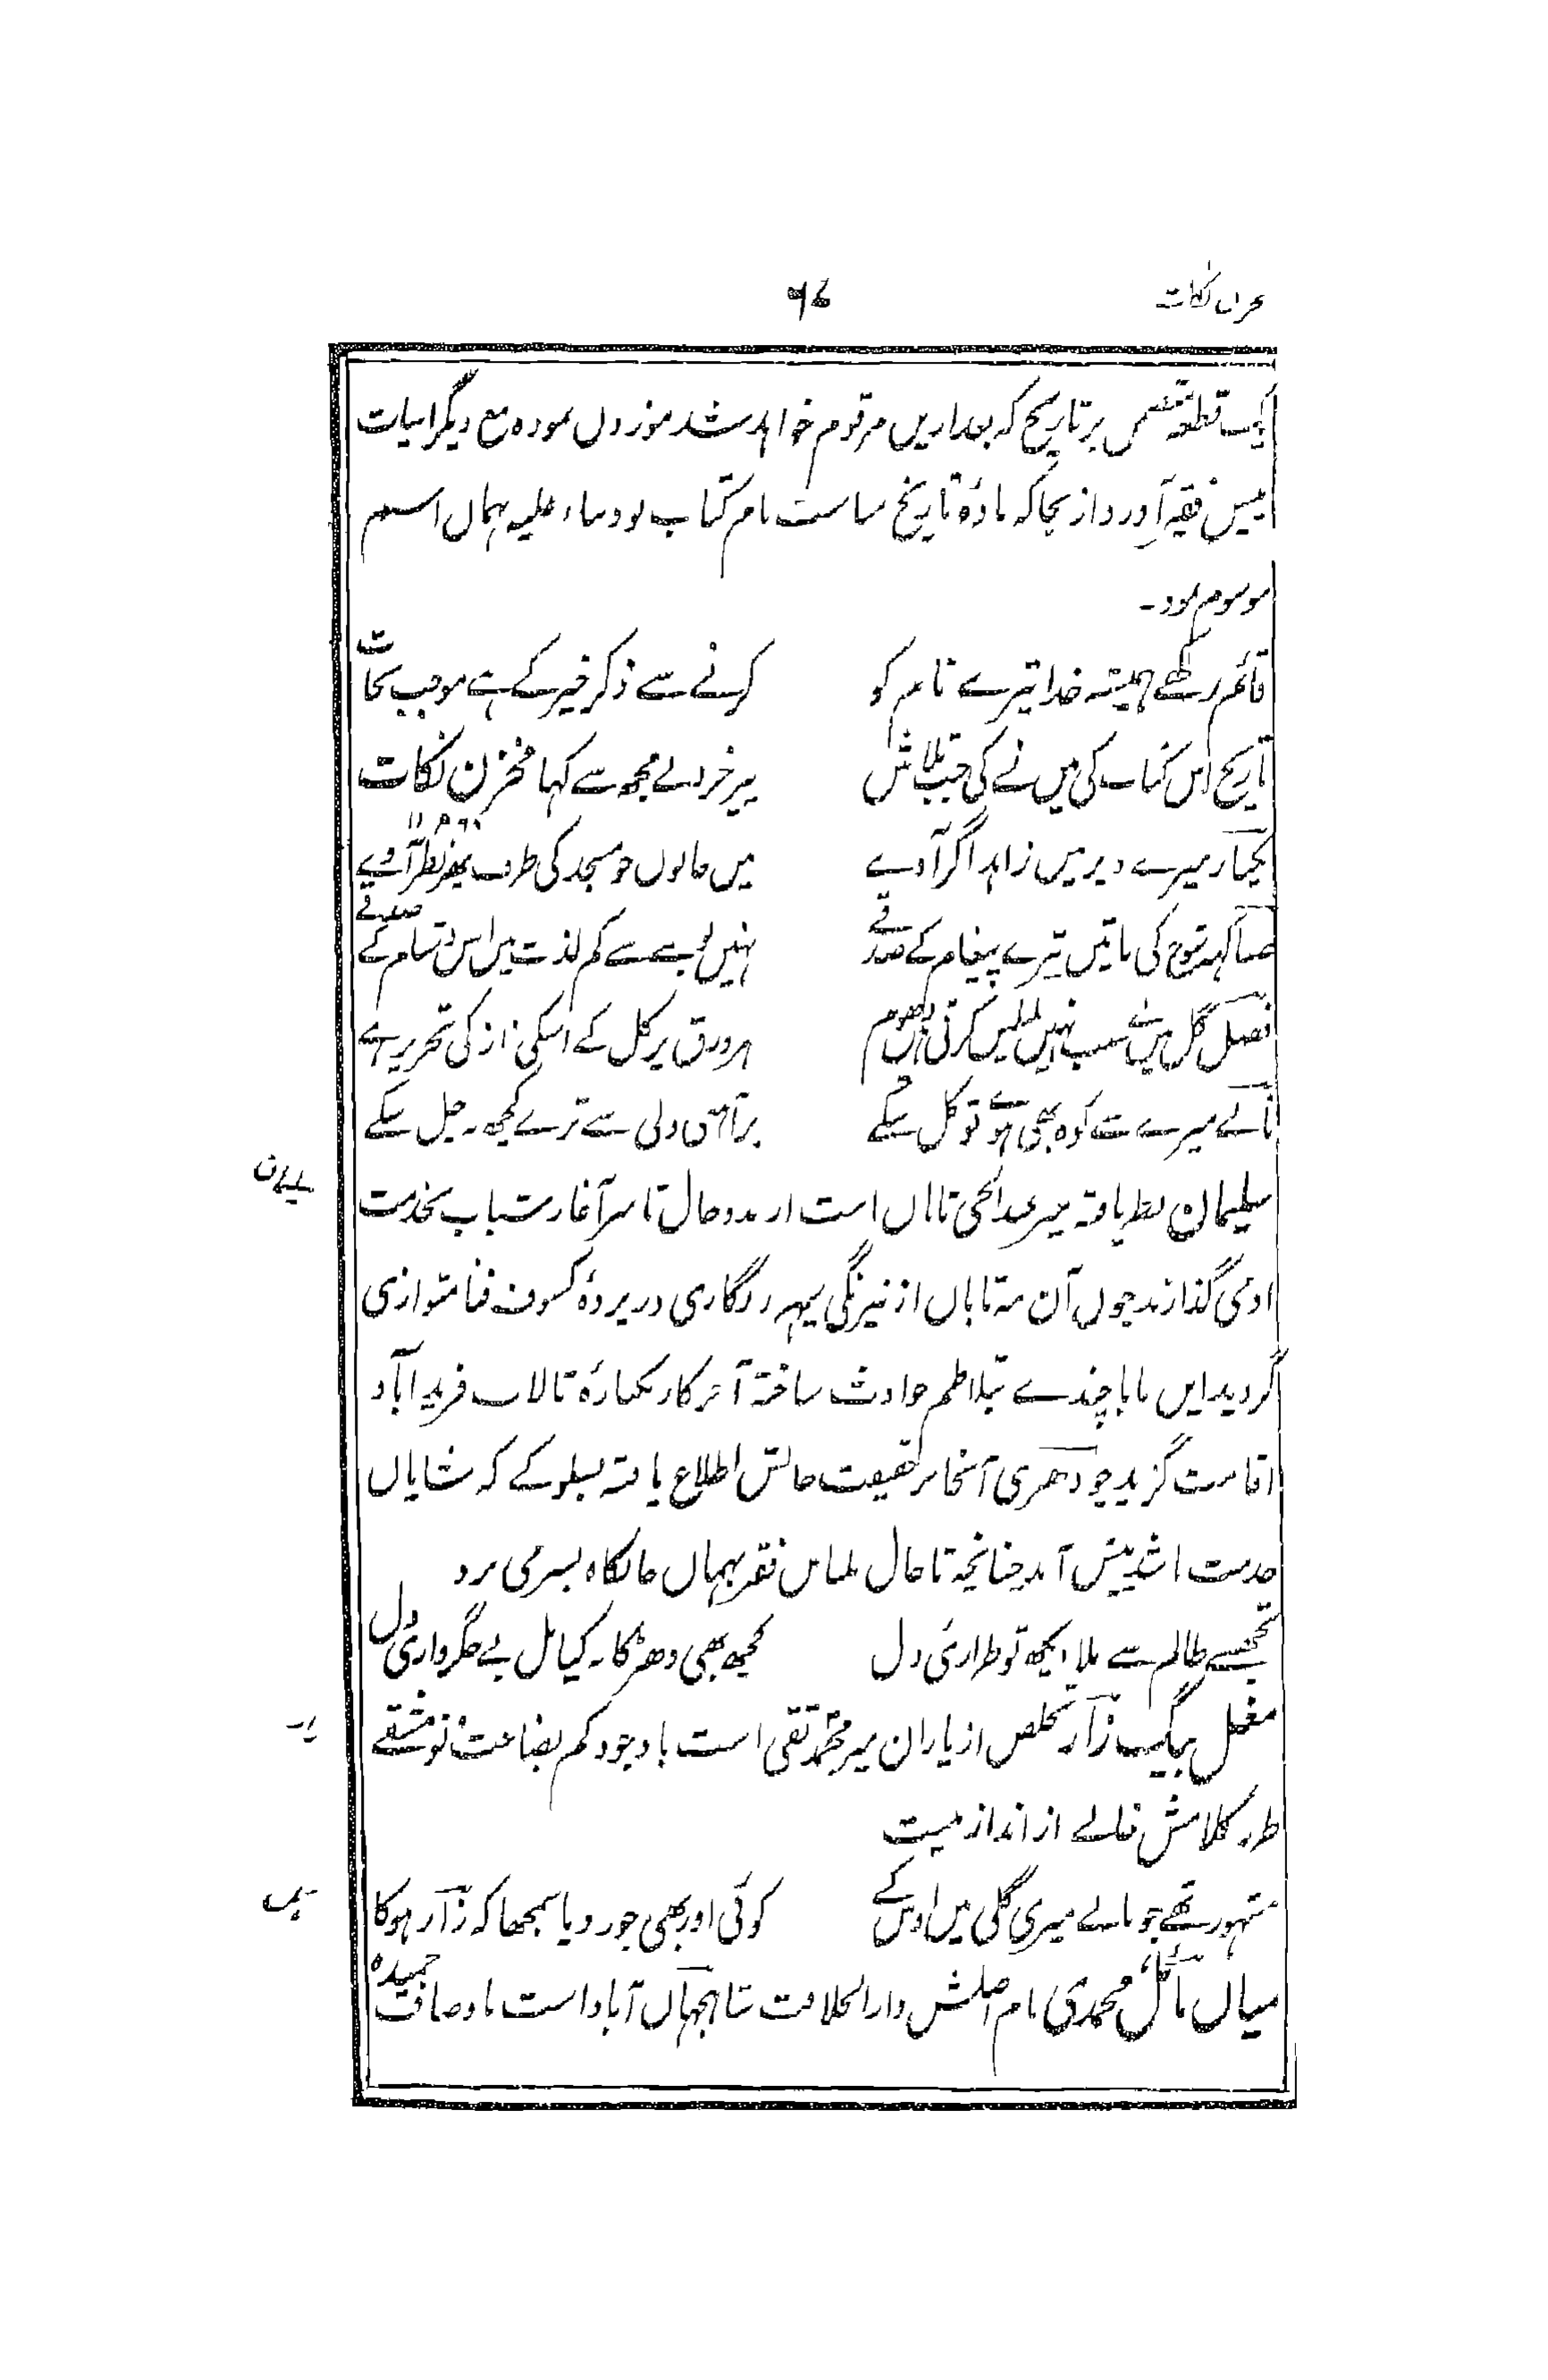 مخزن نکات
۶۷
یک قطعہ متضمن بر تاریخ کہ بعد ازیں مرقوم خواہد شد موزوں نمودہ مع دیگر ابیات
پیش فقیر آورد از بجا کہ مادّہ تاریخ مناسبت نام کتاب بود بناء علیہ ہماں اسم
موسوم نمود۔
قائم رکھے ہمیشہ خدا تیرے نام کو
کرنے سے ذکر خیر کے ہے موجب نجات
تاریخ اس کتاب کی میں نے کی جب تلاش
پیر خرد نے مجھ سے کہا مخزن نکات
یکبار میرے دیر میں زاہد اگر آوے
میں جانوں جو مسجد کی طرف پھر نظر آوے
صبا کہہ شوخ کی باتیں تیرے پیغام کے صدقے
نہیں بوسے سے کم لذت میں اس دشنام کے صدقے
فصل گل میں بے سبب نہیں بلبلیں کرتی ہیں دھوم
ہر ورق پر گل کے اسکی ناز کی تحریر ہے
نالے میرے سے کوہ بھی ہووے تو گل سکے
پر آہن دلی سے ترے کچھ نہ چل سکے
سلیمان
سلیمان نظر یافتہ میر عبدالحی تاباں است از بدو حال تا سر آغاز شباب بخدمت
اومی گذازند چوں آن مہ تاباں از نیرنگی سپہر زنگاری در پردۂ کسوف فنا متواری
گردید ایں بابا چندے بتلاطم حوادث ساختہ آخر کار بکنارۂ تالاب فرید آباد
اقامت گزید چودھری آنجا بر حقیقت حالش اطلاع یافتہ بسلوکے کہ شایاں
خدمت اش پیش آمد چنانچہ تا حال بلباس فقر بہماں جائگاہ بسر می برد
تجھسے ظالم سے ملا دیکھ تو طراریٔ دل
کچھ بھی دھڑکا نہ کیا بل بے جگر داریٔ دل
زار
مغل بیگ زار تخلص از یاران میر محمد تقی است باوجود کم بضاعت نو مشقے
طرز کلامش خالے از انداز نیست
مشہور تھے جو نالے میری گلی میں اوس کے
کوئی اور بھی جو رویا سمجھا کہ زار ہوگا
میاں مائل محمدی نام اصلش دارالخلافت شاہجہاں آباد است باوصاف حمیدہ